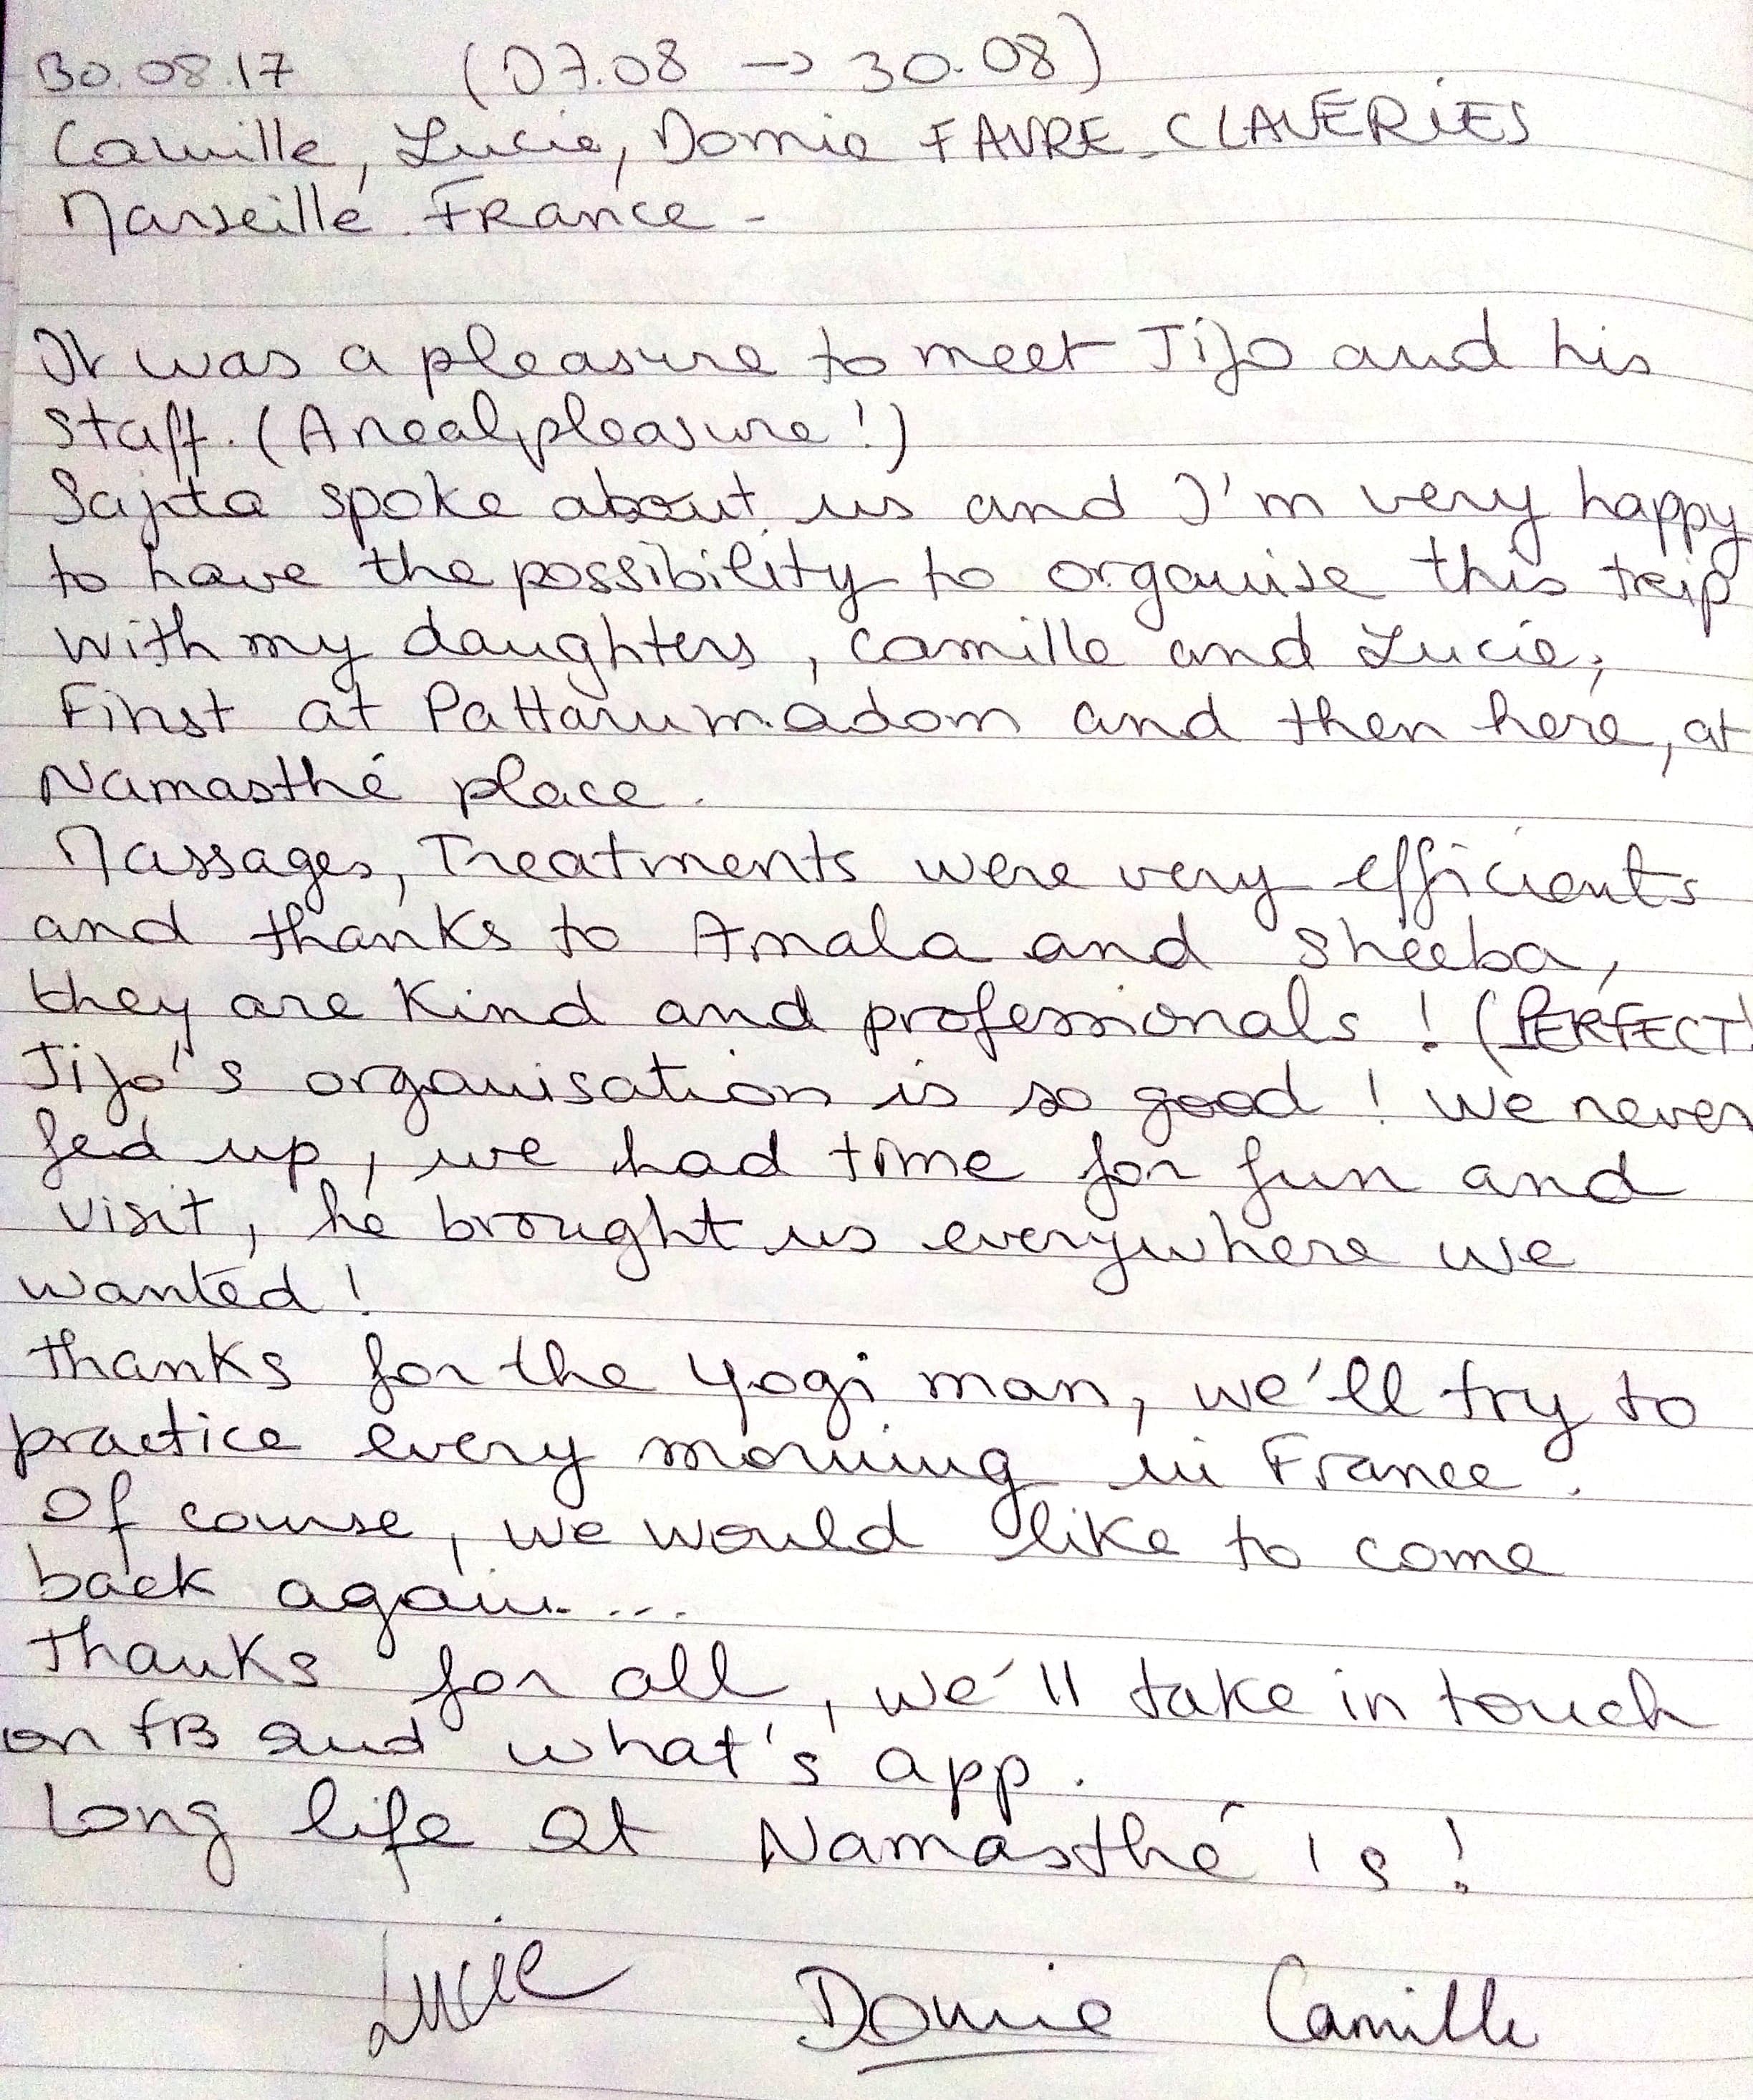 30.08.17 (07.08 → 30.08)
Camille, Lucie, Domie FAVRE_CLAVERiES
Marseille. France -
It was a pleasure to meet Jijo and his
staff. (A real pleasure!)
spoke about us and I'm very happy
to have the possibility to organise this trip
with my daughters, Camille and Lucie,
First at Pattarumadom and then here, at
Namasthé place.
Massages, Treatments were very efficients
and thanks to Amala and Sheeba,
they are kind and professionals ! (PERFECT!
Jijo's organisation is so good ! We never
fed up, we had time for fun and
visit, he brought us everywhere we
wanted !
thanks for the yogi man, we'll try to
practice every morning in France.
Of course, we would like to come
back again....
Thanks for all, we'll take in touch
on FB and what's app.
Long life at Namasthé is !
Lucie Domie Camille